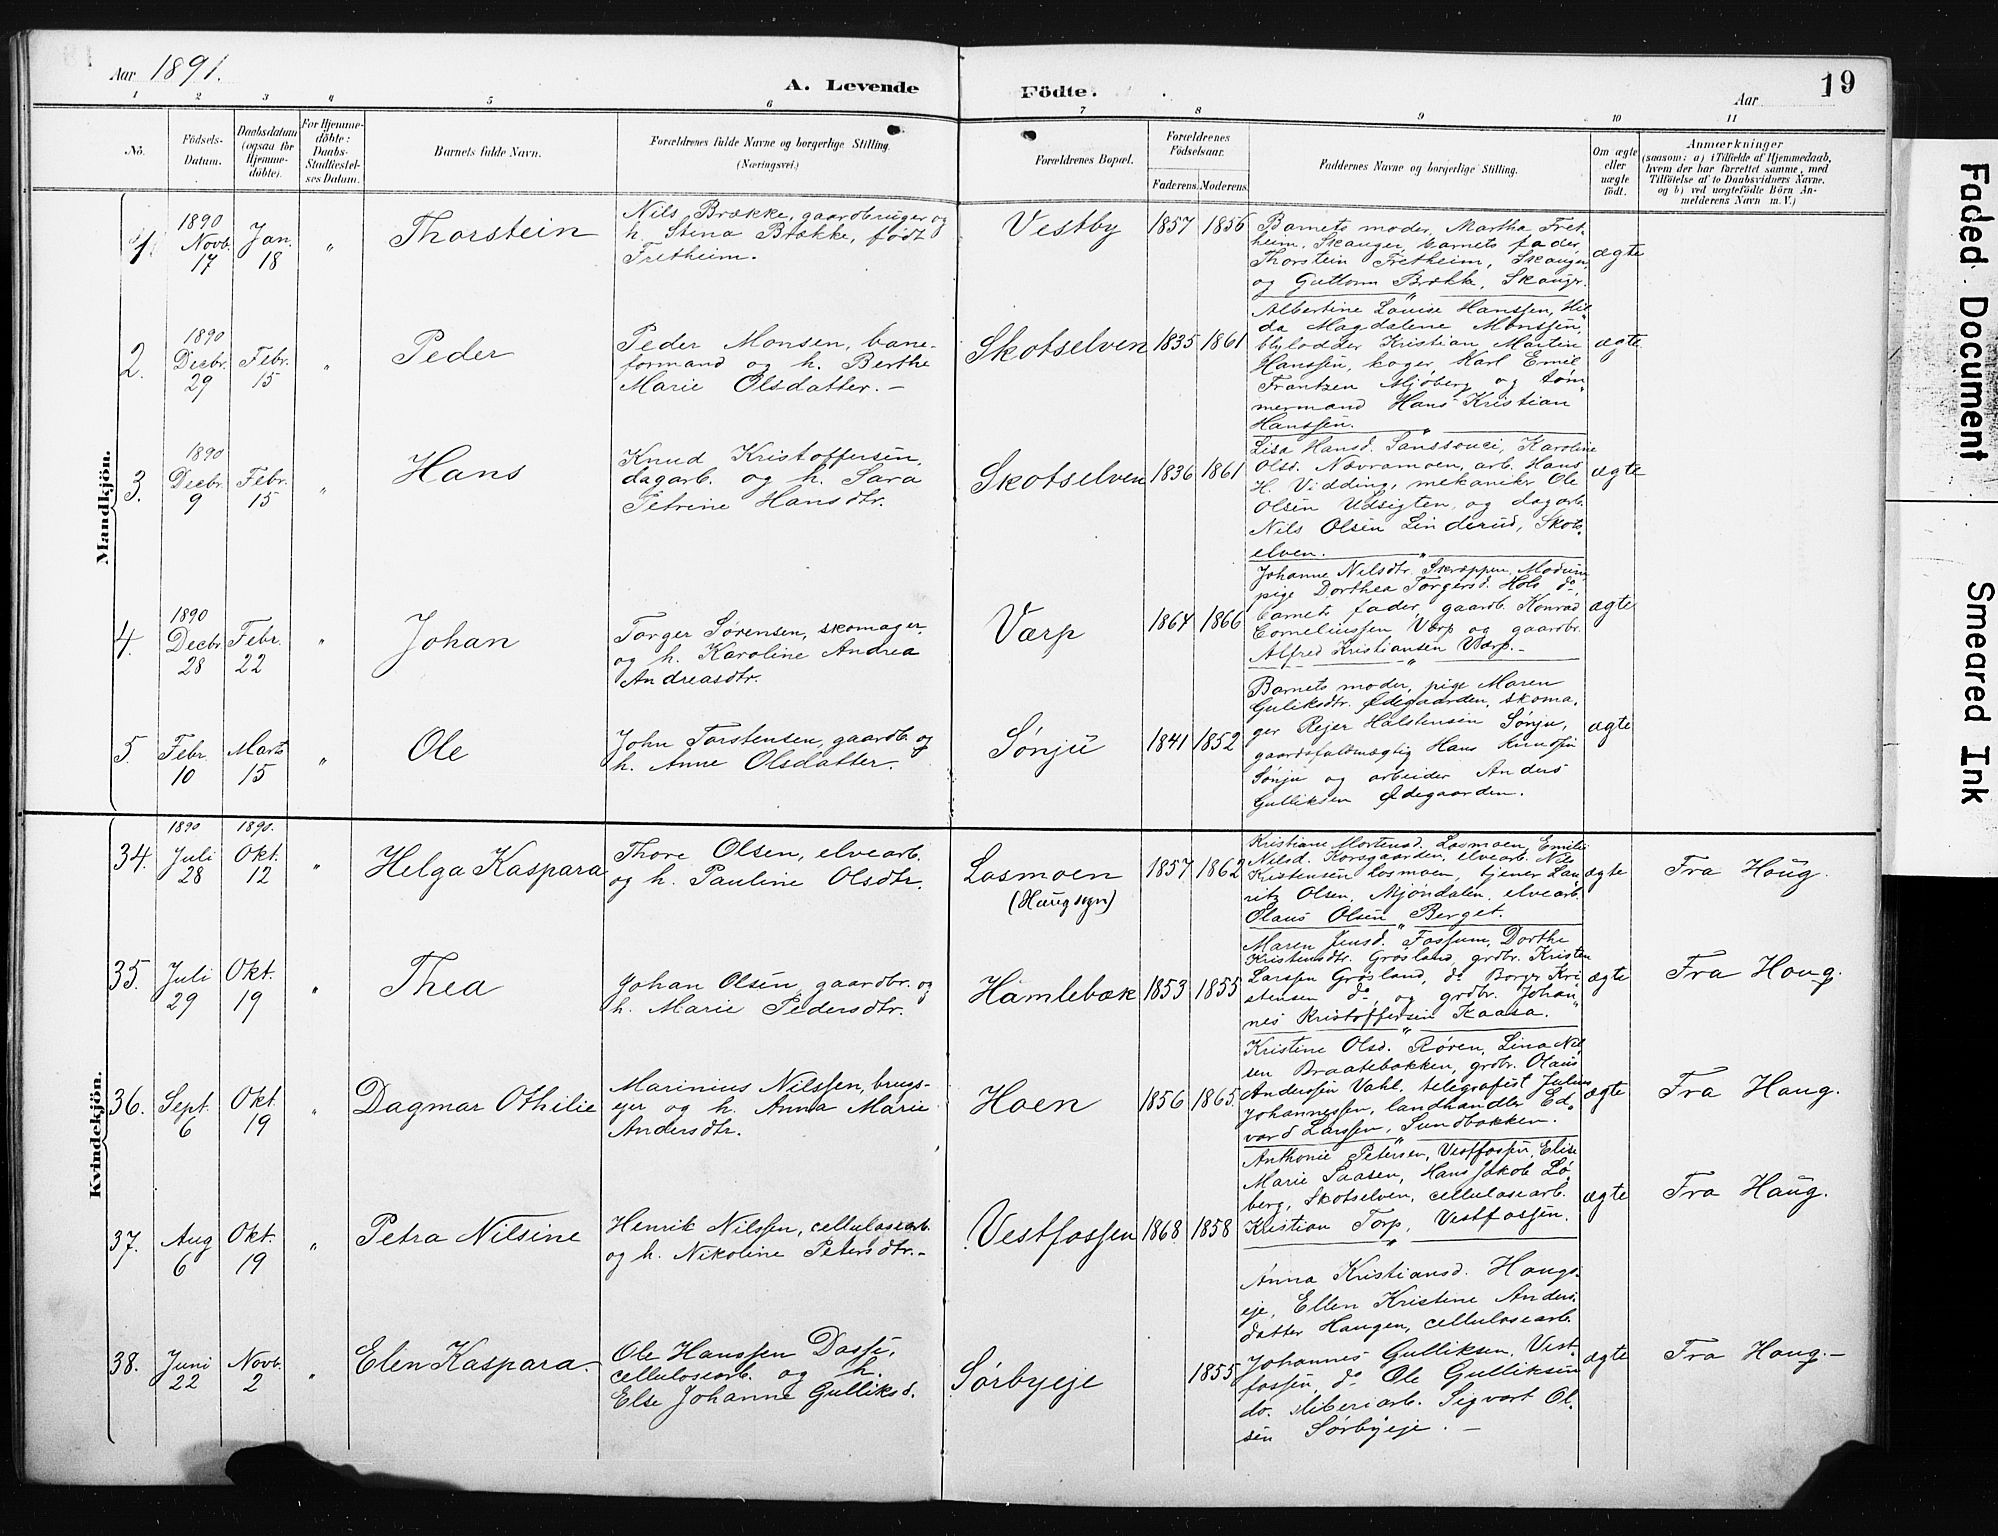 Aar 1891.
A. Levende Födte.
Aar
19
1 2 3 4 5 6 7 8 9 10 11
No.
Födsels-
Datum.
Daabsdatum
(ogsaa for
Hjemme-
døbte).
For Hjemme-
døbte:
Daabs-
Stadfæstel-
ses Datum.
Barnets fulde Navn.
Forældrenes fulde Navne og borgerlige Stilling.
(Næringsvei.)
Forældrenes Bopæl.
Forældrenes
Fødselsaar.
Faderens. Moderens.
Faddernes Navne og borgerlige Stilling.
Om ægte
eller
uægte
født.
Anmærkninger
(saasom: a) i Tilfælde af Hjemmedaab,
hvem der har forrettet samme, med
Tilføielse af to Daabsvidners Navne,
og b) ved uægtefødte Börn An-
melderens Navn m. V.)
Mandkjön.
1.
1890
Novb.
17
Jan.
18
"
Thorstein
Nils Brække, gaardbruger og
h. Stina Brække, født
Fretheim.
Vestby
1857 1856
Barnets moder, Martha Fret-
heim, Skauger, barnets fader,
Thorstein Fretheim, Skauger,
og Guttorm Brække, Skaugr.
ægte
2.
1890
Decbr.
29
Febr.
15
"
Peder
Peder Monsen, bane-
formand og h. Berthe
Marie Olsdatter. -
Skotselven
1835 1861
Albertine Louise Hanssen, Hil-
da Magdalene Monssen,
Kristian Martin
Hanssen, koger Karl Emil
Frantzen Mjöberg og töm-
mermand Hans Kristian
Hanssen.
ægte
3.
1890
Decbr.
9
Febr.
15
"
Hans
Knud Kristoffersen,
dagarb. og h. Sara
Petrine Hansdtr.
Skotselven
1836 1861
Lisa Hansd. Sanssouci, Karoline
Olsd. Nævramoen, arb. Hans
H. Vidding, mekanikr Ole
Olsen Udsigten, og dagarb.
Nils Olsen Linderud, Skots-
elven.
ægte
4.
1890
Decbr.
28
Febr.
22
"
Johan
Torger Sørensen, skomager,
og h. Karoline Andrea
Andreasdtr.
Værp
1864 1866
Johanne Nilsdtr. Skræppen, Modum,
pige Dorthea Torgersd. Hols do
barnets fader, gaardb. Konrad
Corneliussen Værp og gaardbr.
Alfred Kristiansen Værp. -
ægte
5.
Febr.
10
Marts
15
"
Ole
John Torstensen, gaardb. og
h. Anne Olsdatter.
Sønju
1841 1852
Barnets moder, pige Maren
Guliksdtr. Ødegaarden, skoma-
ger Rejer Halstensen Sønju,
gaardsfuldmægtig Hans Knudsen
Sønju og arbeider Anders
Gulliksen Ødegaarden.
ægte
Kvindekjön.
34.
1890
Juli
28
1890.
Okt.
12
"
Helga Kaspara
Thore Olsen, elvearb.
og h. Pauline Olsdtr.
Losmoen
(Haugsogn)
1857 1862
Kristiane Mortensd. Losmoen, Emilie
Nilsd. Korsgaarden, elvearb. Nils
Kristensen Losmoen, tjener Lau-
ritz Olsen, Mjøndalen, elvearb.
Olaus Olsen Berget.
ægte
Fra Haug.
35.
Juli
29
Okt.
19
"
Thea
Johan Olsen, gaardbr. og
h. Marie Pedersdtr.
Hamlebæk
1853 1855
Maren Jensd. Fossum, Dorthe
Kristensdtr. Grøsland, grdbr. Kristen
Larssen Grøsland, do Borger Kri-
stensen do, og grdbr. Johan-
nes Kristoffersen Kaasa.
ægte
Fra Haug.
36.
Sept.
6
Okt.
19
"
Dagmar Othilie
Marinius Nilssen, brugs-
ejer og h. Anna Marie
Andersdtr.
Hoen
1856 1865
Kristine Olsd. Røren, Lina Nil-
sen Braatebakken, grdbr. Olaus
Anderssen Vahl, telegrafist Julius
Johannessen, landhandler Ed-
vard Larssen, Sundbakken.
ægte
Fra Haug.
37.
Aug
6
Okt.
19
"
Petra Nilsine
Henrik Nilssen, cellulosearb.
og h. Nikoline Petersdtr. -
Vestfossen
1868 1858
Anthonie Petersen, Vestfossen, Elise
Marie Saasen, Hans Jakob Lö-
berg, Skotselven, cellulosearb.
Kristian Torp, Vestfossen.
ægte
Fra Haug.
38.
Juni
22
Novb.
2
"
Elen Kaspara.
Ole Hanssen Dosse,
cellulosearb. og h.
Else Johanne Gulliksd.
Sørbyeje
1855
Anna Kristiansd. Haugs-
eje, Ellen Kristine Anders-
datter Haugen, cellulosearb.
Johannes Gulliksen, Vest-
fossen, do Ole Gulliksen
do. sliberiarb. Sigvart Ol-
sen Sørbyeje. -
ægte
Fra Haug. -
Faded Document
Smeared Ink